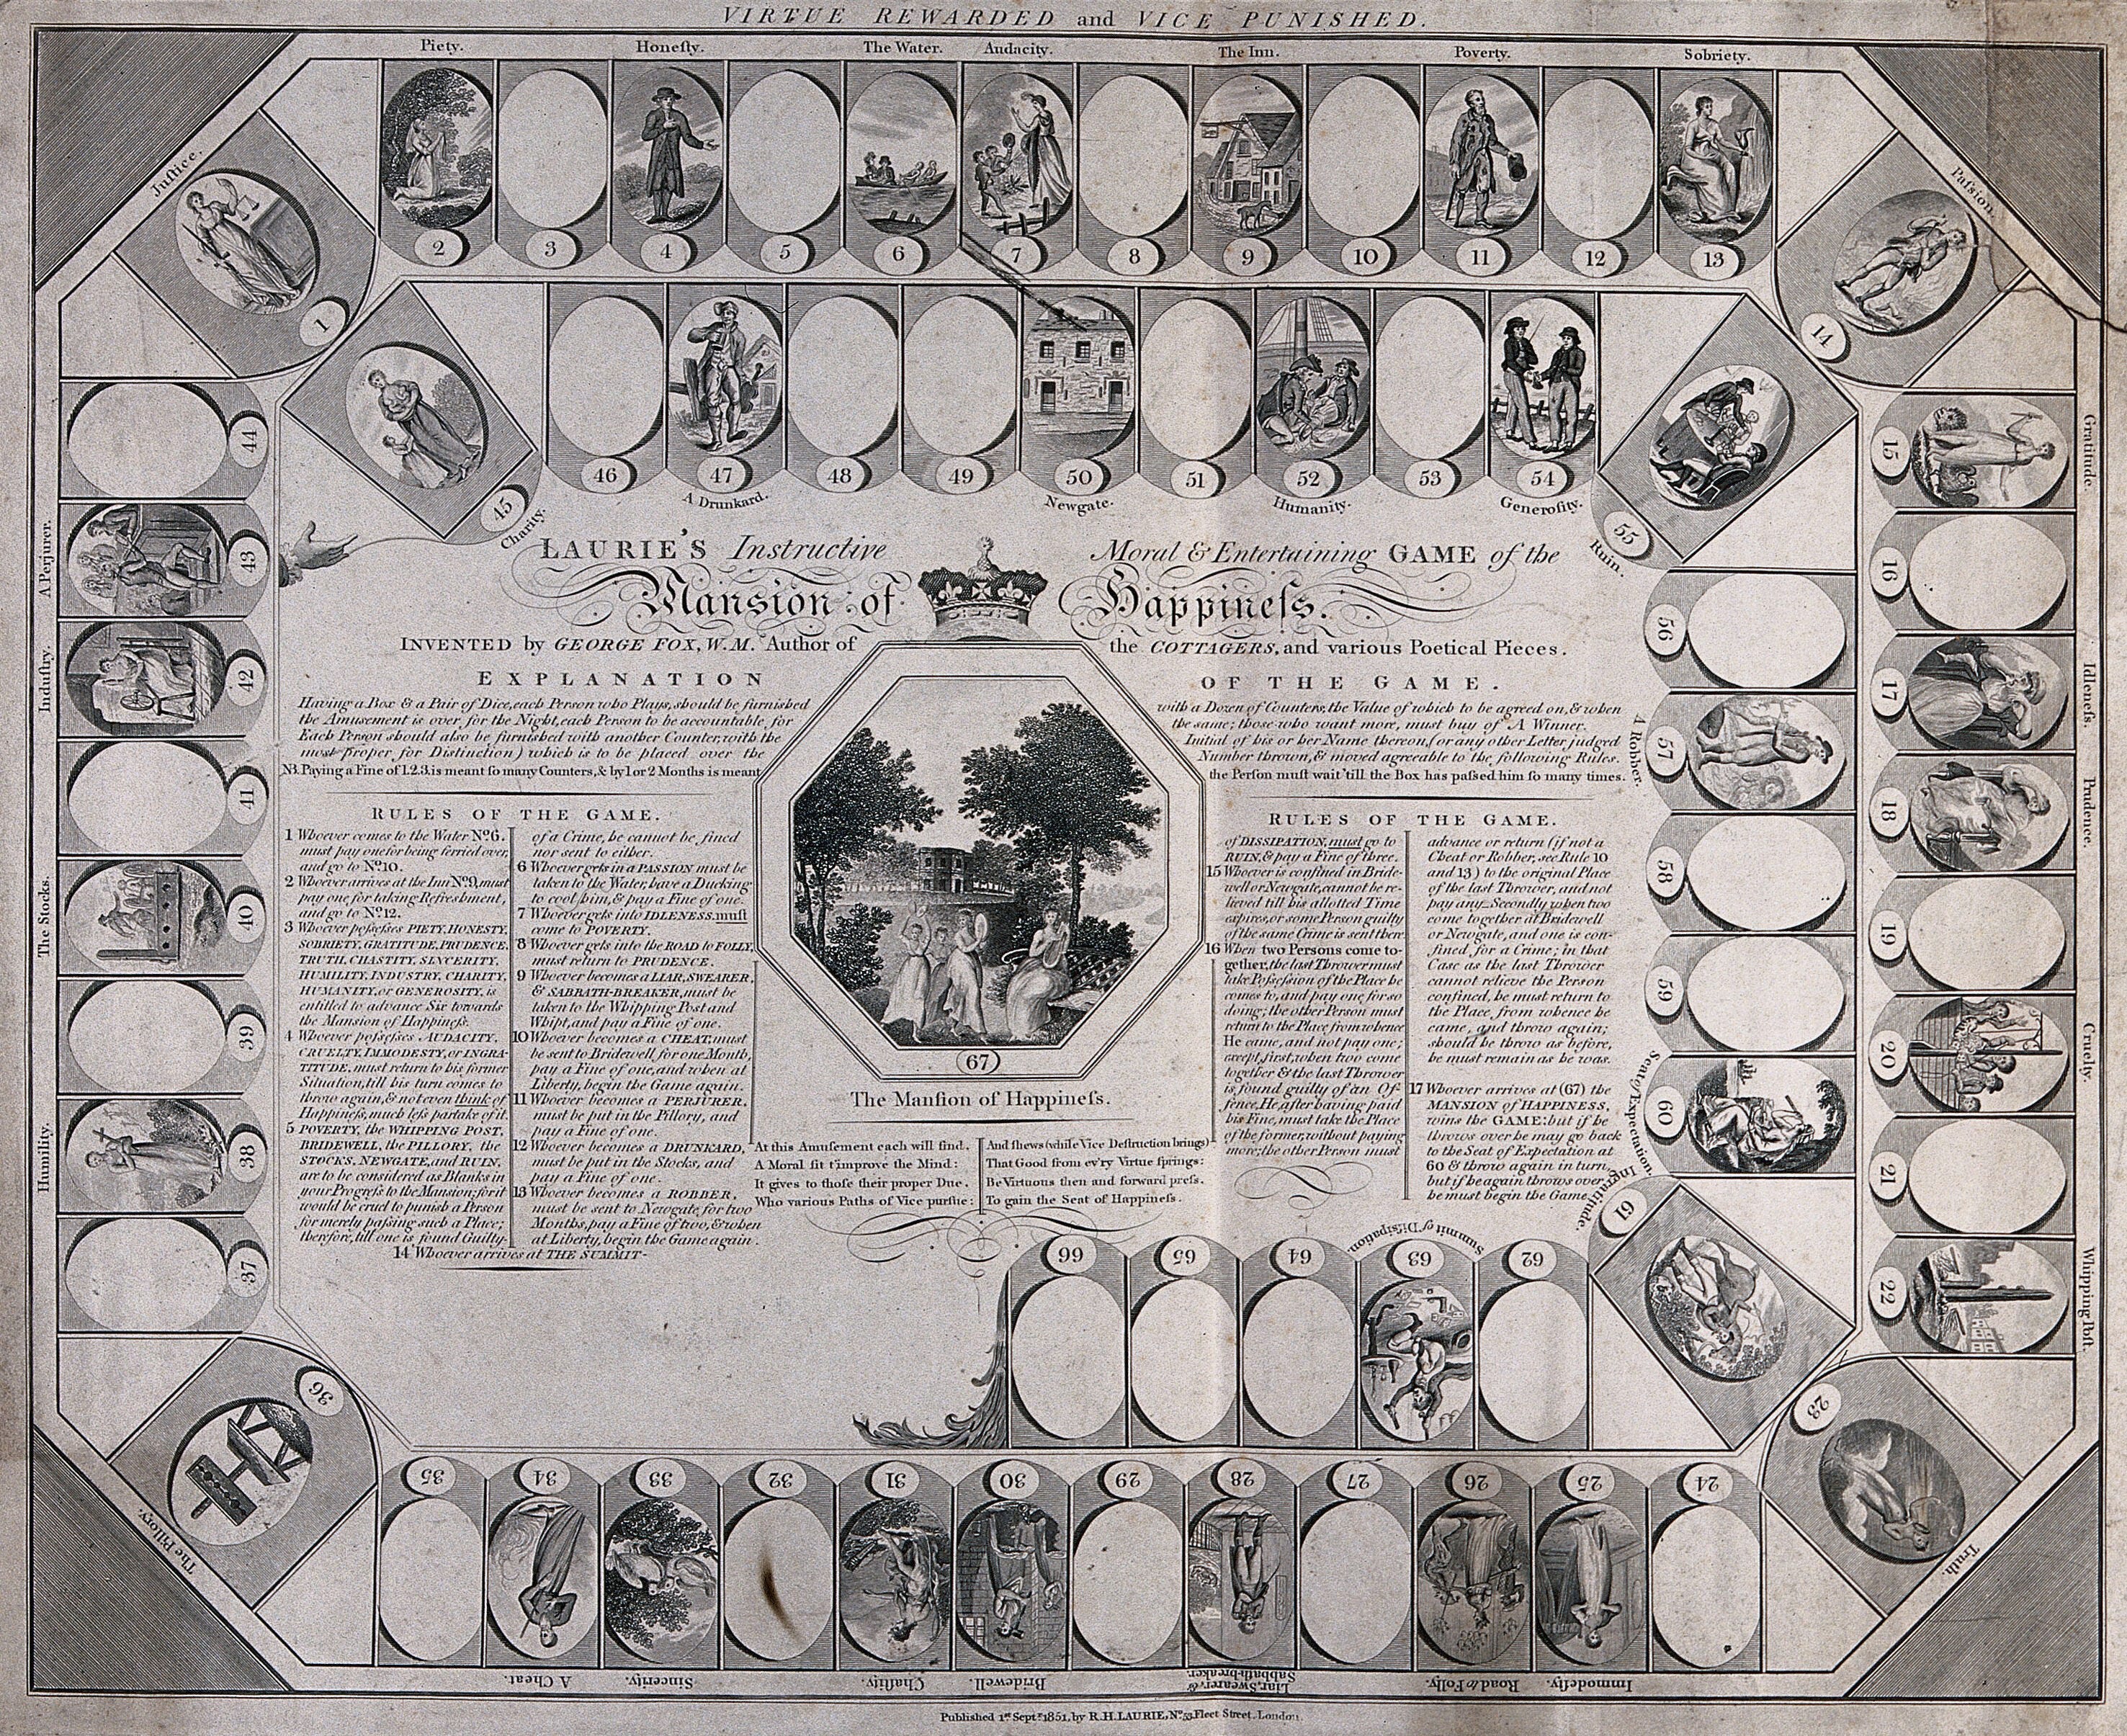 VIRTUE REWARDED and VICE PUNISHED.
Piety. Honeſty. The Water. Audacity. The Inn. Poverty. Sobriety.
2 3 4 5 6 7 8 9 10 11 12 13
Juſtice.
1
Paſsion.
14
Gratitude.
15
16
Idleneſs.
17
Prudence.
18
19
Cruelty.
20
21
Whipping Poſt.
22
Truth.
23
24
Immodeſty.
25
Road to Folly.
26
27
Liar, Swearer, &
Sabbath-breaker.
28
29
Bridewell.
30
Chaſtity.
31
32
Sincerity.
33
A Cheat.
34
35
The Pillory.
36
37
Humility.
38
39
The Stocks.
40
41
Induſtry.
42
A Perjurer.
43
44
Charity.
45
46 47 48 49 50 51 52 53 54
A Drunkard. Newgate. Humanity. Generoſity.
Ruin.
55
56
A Robber.
57
58
59
Seat of Expectation.
60
Ingratitude.
61
62
Summit of Diſsipation.
63
64
65
66
LAURIE'S Instructive Moral & Entertaining GAME of the
Mansion of Happineſs.
INVENTED by GEORGE FOX, W.M. Author of the COTTAGERS, and various Poetical Pieces.
EXPLANATION OF THE GAME.
Having a Box & a Pair of Dice, each Person who Plays, should be furnished with a Dozn of Counters, the Value of which to be agreed on, & when
the Amusement is over for the Night, each Person to be accountable for the same; those who want more, must buy of A Winner.
Each Person should also be furnished with another Counter, with the Initial of his or her Name thereon, (or any other Letter judged
most proper for Distinction) which is to be placed over the Number thrown, & moved agreeable to the following Rules.
NB. Paying a Fine of 1.2.3. is meant ſo many Counters, & by 1 or 2 Months is meant the Perſon muſt wait 'till the Box has paſsed him ſo many times.
RULES OF THE GAME.
1 Whoever comes to the Water No. 6.
must pay one for being ferried over,
and go to No. 10.
2 Whoever arrives at the Inn No. 9, must
pay one for taking Refreshment,
and go to No. 12.
3 Whoever poſseſses PIETY, HONESTY,
SOBRIETY, GRATITUDE, PRUDENCE,
TRUTH, CHASTITY, SINCERITY,
HUMILITY, INDUSTRY, CHARITY,
HUMANITY, or GENEROSITY, is
entitled to advance Six towards
the Mansion of Happineſs.
4 Whoever poſseſses AUDACITY,
CRUELTY, IMMODESTY, or INGRA-
TITUDE, must return to his former
Situation, till his turn comes to
throw again, & not even think of
Happineſs, much leſs partake of it.
5 POVERTY, the WHIPPING POST,
BRIDEWELL, the PILLORY, the
STOCKS, NEWGATE, and RUIN,
are to be considered as Blanks in
your Progreſs to the Mansion; for it
would be cruel to punish a Person
for merely paſsing such a Place;
therefore, till one is found Guilty
of a Crime, he cannot be fined
nor sent to either.
6 Whoever gets in a PASSION must be
taken to the Water, have a Ducking
to cool him, & pay a Fine of one.
7 Whoever gets into IDLENESS, must
come to POVERTY.
8 Whoever gets into the ROAD to FOLLY,
must return to PRUDENCE.
9 Whoever becomes a LIAR, SWEARER,
& SABBATH-BREAKER, must be
taken to the Whipping Post and
Whipt, and pay a Fine of one.
10 Whoever becomes a CHEAT, must
be sent to Bridewell, for one Month,
pay a Fine of one, and when at
Liberty, begin the Game again.
11 Whoever becomes a PERJURER,
must be put in the Pillory, and
pay a Fine of one.
12 Whoever becomes a DRUNKARD,
must be put in the Stocks, and
pay a Fine of one.
13 Whoever becomes a ROBBER,
must be sent to Newgate, for two
Months, pay a Fine of two, & when
at Liberty, begin the Game again.
14 Whoever arrives at THE SUMMIT
RULES OF THE GAME.
of DISSIPATION, must go to
RUIN, & pay a Fine of three.
15 Whoever is confined in Bride-
well or Newgate, cannot be re-
lieved till his allotted Time
expires, or some Person guilty
of the same Crime is sent there.
16 When two Persons come to-
gether, the last Thrower must
take Poſseſsion of the Place he
comes to, and pay one for so
doing; the other Person must
return to the Place from whence
He came, and not pay one;
except, first, when two come
together & the last Thrower
is found guilty of an Of-
fence, He, after having paid
his Fine, must take the Place
of the former, without paying
more; the other Person must
advance or return (if not a
Cheat or Robber, see Rule 10
and 13) to the original Place
of the last Thrower, and not
pay any. Secondly when two
come together at Bridewell
or Newgate, and one is con-
fined for a Crime; in that
Case as the last Thrower
cannot relieve the Person
confined, he must return to
the Place from whence he
came, and throw again;
should he throw as before,
he must remain as he was.
17 Whoever arrives at (67) the
MANSION of HAPPINESS,
wins the GAME; but if he
throws over he may go back
to the Seat of Expectation at
60 & throw again in turn,
but if he again throws over
he must begin the Game.
67
The Manſion of Happineſs.
At this Amuſement each will find,
A Moral fit t'improve the Mind:
It gives to thoſe their proper Due,
Who various Paths of Vice purſue:
And ſhews (while Vice Deſtruction brings)
That Good from ev'ry Virtue ſprings:
Be Virtuous then and forward preſs,
To gain the Seat of Happineſs.
Published 1st Septr. 1851, by R.H. LAURIE, No. 53, Fleet Street, London.